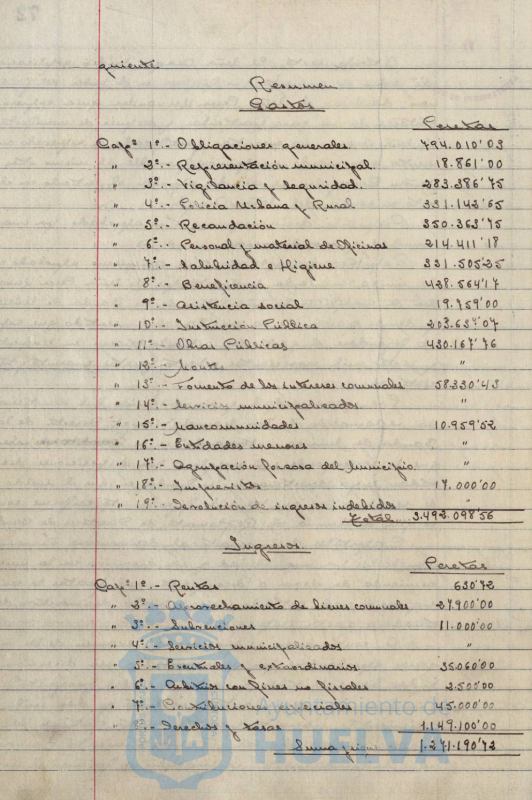 quiente.
Resumen
Gastos
Pesetas
Capº 1º.- Obligaciones generales. 794.010'03
" 2º.- Representación municipal. 18.861'00
" 3º.- Vigilancia y seguridad. 283.386'75
" 4º.- Policia Urbana y Rural 331.142'65
" 5º.- Recaudación 350.363'75
" 6º.- Personal y material de Oficinas 214.411'18
" 7º.- Salubridad e Higiene 331.505'25
" 8º.- Beneficencia 428.564'17
" 9º.- Asistencia social 19.759'00
" 10º.- Instrucción Pública 203.637'07
" 11º.- Obras Públicas 430.167'76
" 12º.- Montes "
" 13º.- Fomento de los intereses comunales 58330'43
" 14º.- Servicios municipalizados "
" 15º.- Mancomunidades 10.959'52
" 16º.- Entidades menores "
" 17º.- Agrupación forzosa del Municipio. "
" 18º.- Imprevistos 17.000'00
" 19º.- Devolución de ingresos indebidos "
Total 3.492.098'56
Ingresos.
Pesetas
Capº 1º.- Rentas 630'72
" 2º.- Aprovechamiento de bienes comunales 27.900'00
" 3º.- Subvenciones 11.000'00
" 4º.- Servicios municipalizados "
" 5º.- Eventuales y extraordinarios 35.060'00
" 6º.- Arbitrios con fines no fiscales 2.500'00
" 7º.- Contribuciones especiales 45.000'00
" 8º.- Derechos y tasas 1.149.100'00
Suma y sigue 1.271.190'72
Ayuntamiento de
HUELVA